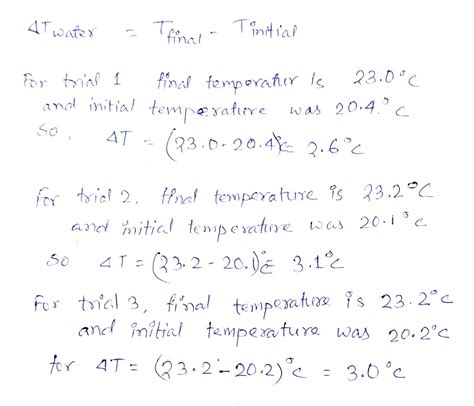 ΔT water = Tfinal - Tinitial
For trial 1 final temperatur is 23.0°C
and initial temperature was 20.4°C
So, ΔT = (23.0-20.4)°C = 2.6°C
for trial 2, final temperature is 23.2°C
and initial temperature was 20.1°C
So ΔT = (23.2 - 20.1)°C = 3.1°C
For trial 3, final temperature is 23.2°C
and initial temperature was 20.2°C
for ΔT = (23.2 - 20.2)°C = 3.0°C